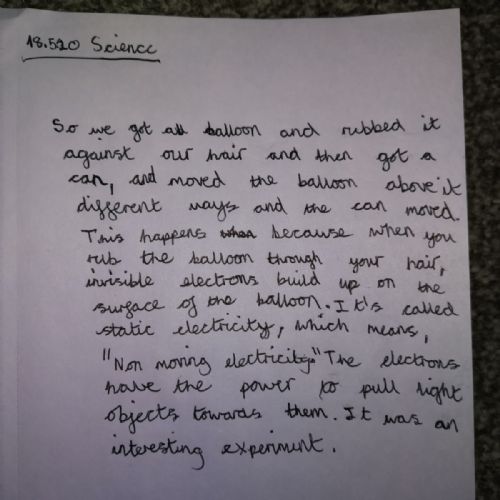 18.5.20 Science
So we got a balloon and rubbed it
against our hair and then got a
can, and moved the balloon above it
different ways and the can moved.
This happens because when you
rub the balloon through your hair,
invisible electrons build up on the
surface of the balloon. It's called
static electricity, which means,
"Non moving electricity" The electrons
have the power to pull light
objects towards them. It was an
interesting experiment.